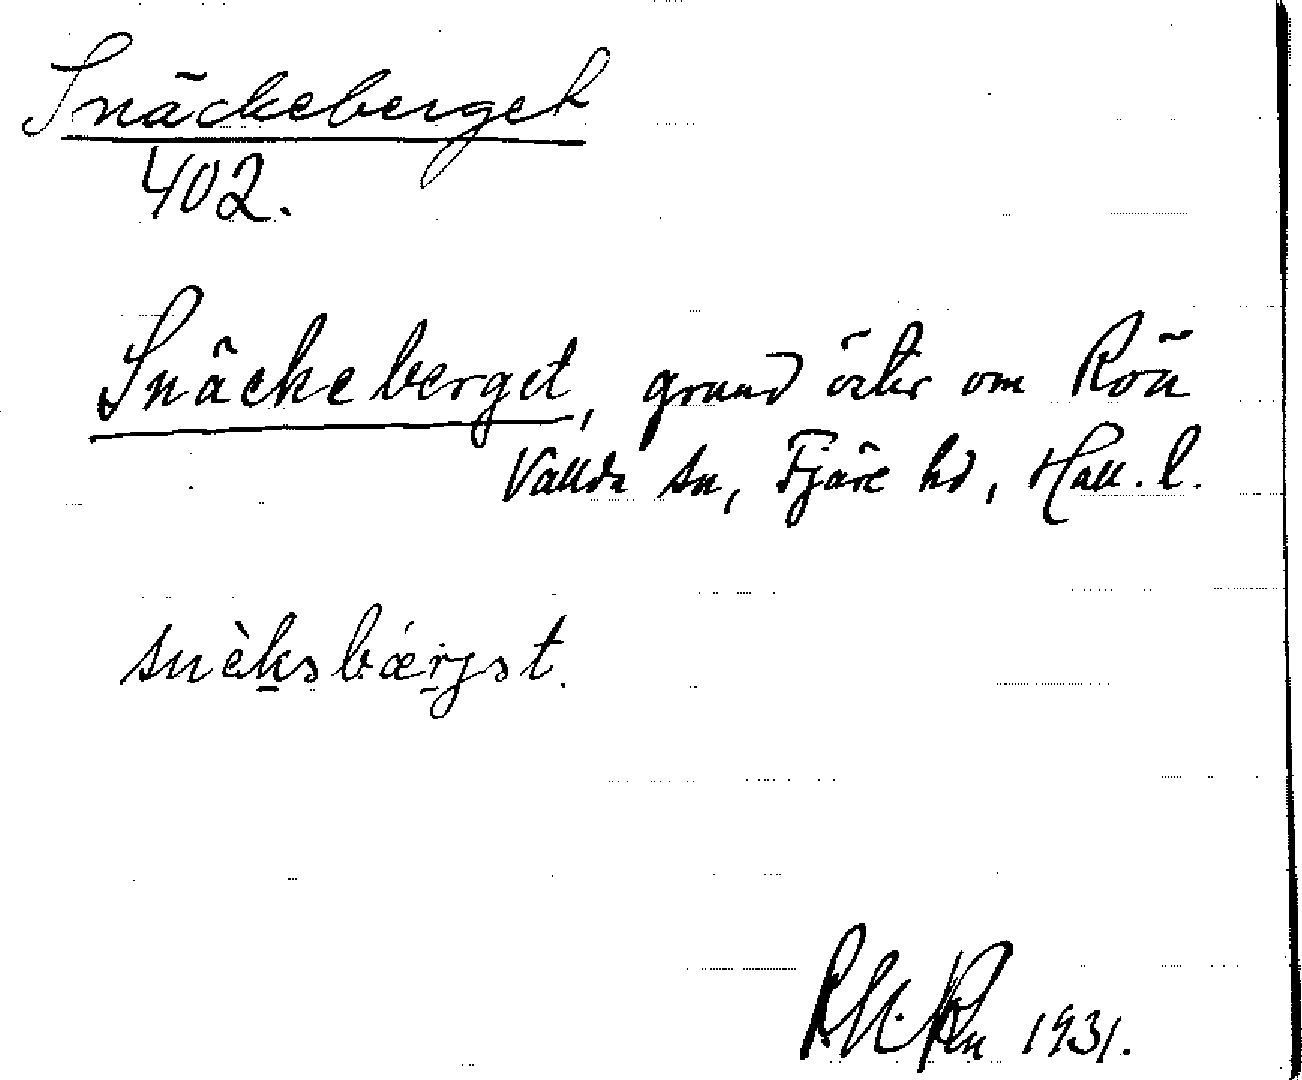 Snäckeberget
402.
Snäckeberget, grund öster om Rön
Vallda sn, Fjäre hd, Hall. l.
snèksbǽrjst.
1931.